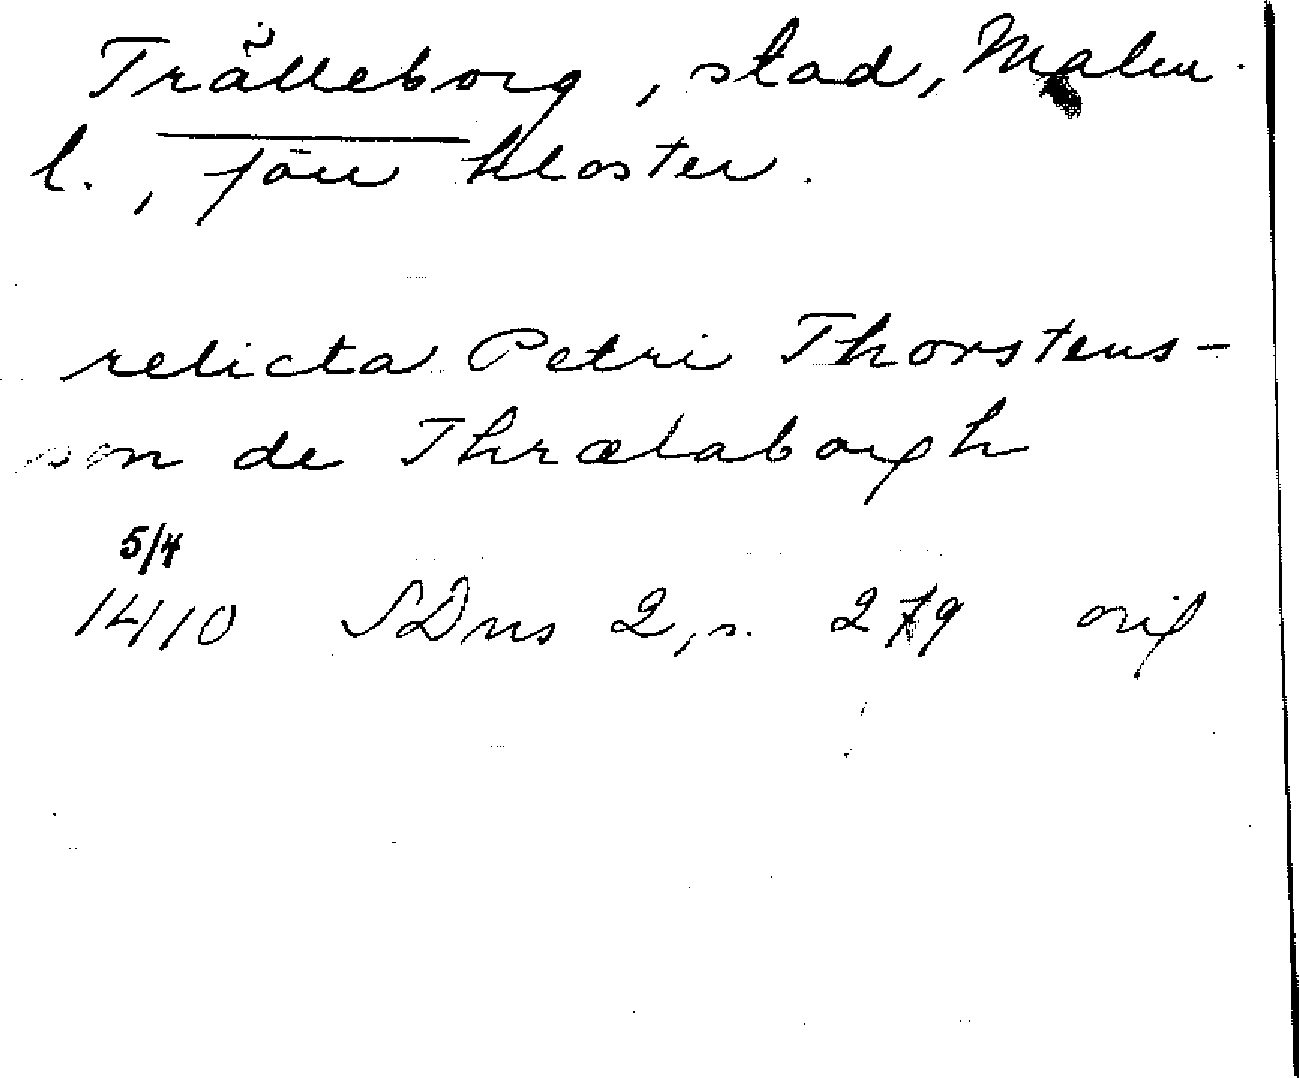 Trälleborg, stad, Malm.
l., även kloster.
relicta Petri Thorstens-
son de Thrælaborgh
5/4
1410 SDns 2, s. 279 orig